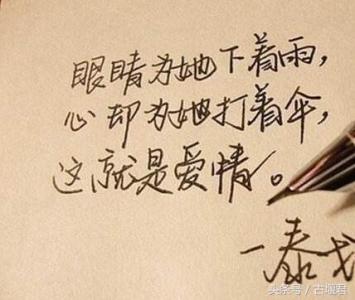 眼睛为她下着雨，
心却为她打着伞，
这就是爱情。
一泰戈
头条号／古堰君